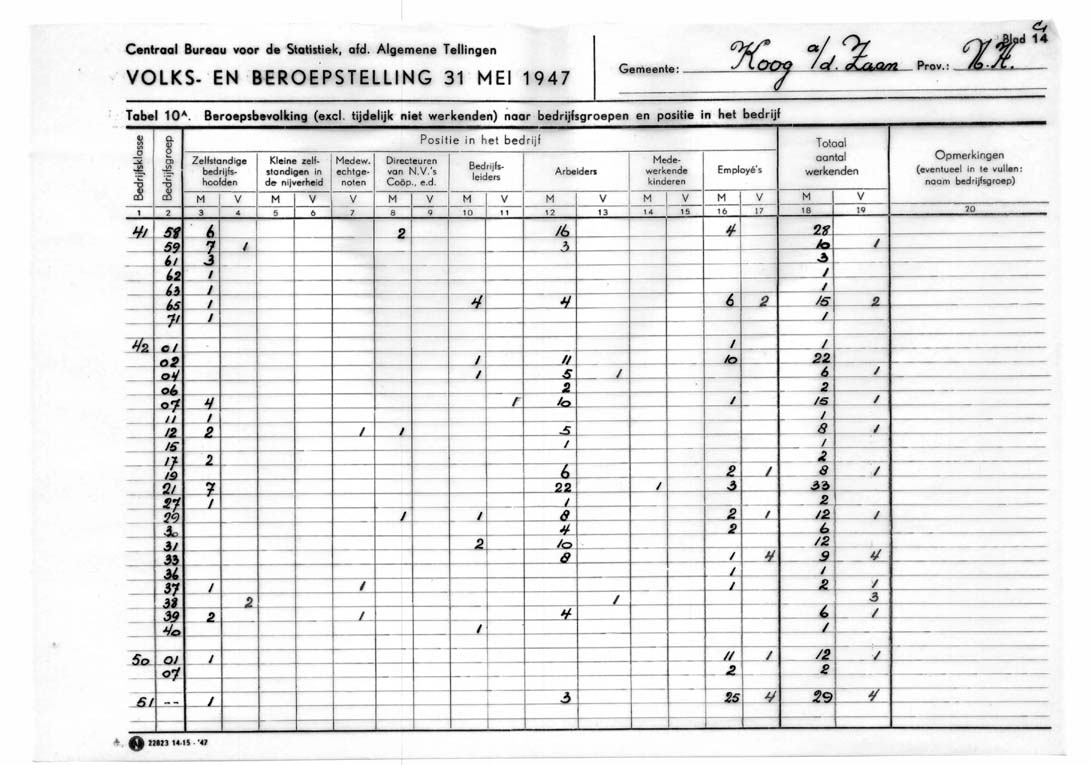 C1
Blad 14
Centraal Bureau voor de Statistiek, afd. Algemene Tellingen
VOLKS- EN BEROEPSTELLING 31 MEI 1947
Gemeente: Koog a/d. Zaan Prov.: N.H.
Tabel 10ᴬ. Beroepsbevolking (excl. tijdelijk niet werkenden) naar bedrijfsgroepen en positie in het bedrijf
Bedrijfsklasse
Bedrijfsgroep
Positie in het bedrijf
Zelfstandige bedrijfs-hoofden
Kleine zelf-standigen in de nijverheid
Medew. echtge-noten
Directeuren van N.V.'s Coöp., e.d.
Bedrijfs-leiders
Arbeiders
Mede-werkende kinderen
Employé's
Totaal aantal werkenden
Opmerkingen (eventueel in te vullen: naam bedrijfsgroep)
M V M V V M V M V M V M V M V M V
1 2 3 4 5 6 7 8 9 10 11 12 13 14 15 16 17 18 19 20
41 58 6 2 16 4 28
59 7 1 3 10 1
61 3 3
62 1 1
63 1 1
65 1 4 4 6 2 15 2
71 1 1
42 01 1 1
02 1 11 10 22
04 1 5 1 6 1
06 2 2
07 4 1 10 1 15 1
11 1 1
12 2 1 1 5 8 1
15 1 1
17 2 2
19 6 2 1 8 1
21 7 22 1 3 33
27 1 1 2
29 1 1 8 2 1 12 1
30 4 2 6
31 2 10 12
33 8 1 4 9 4
36 1 1
37 1 1 1 2 1
38 2 1 3
39 2 1 4 6 1
40 1 1
50 01 1 11 1 12 1
07 2 2
51 -- 1 3 25 4 29 4
N 22823 14-15 - '47